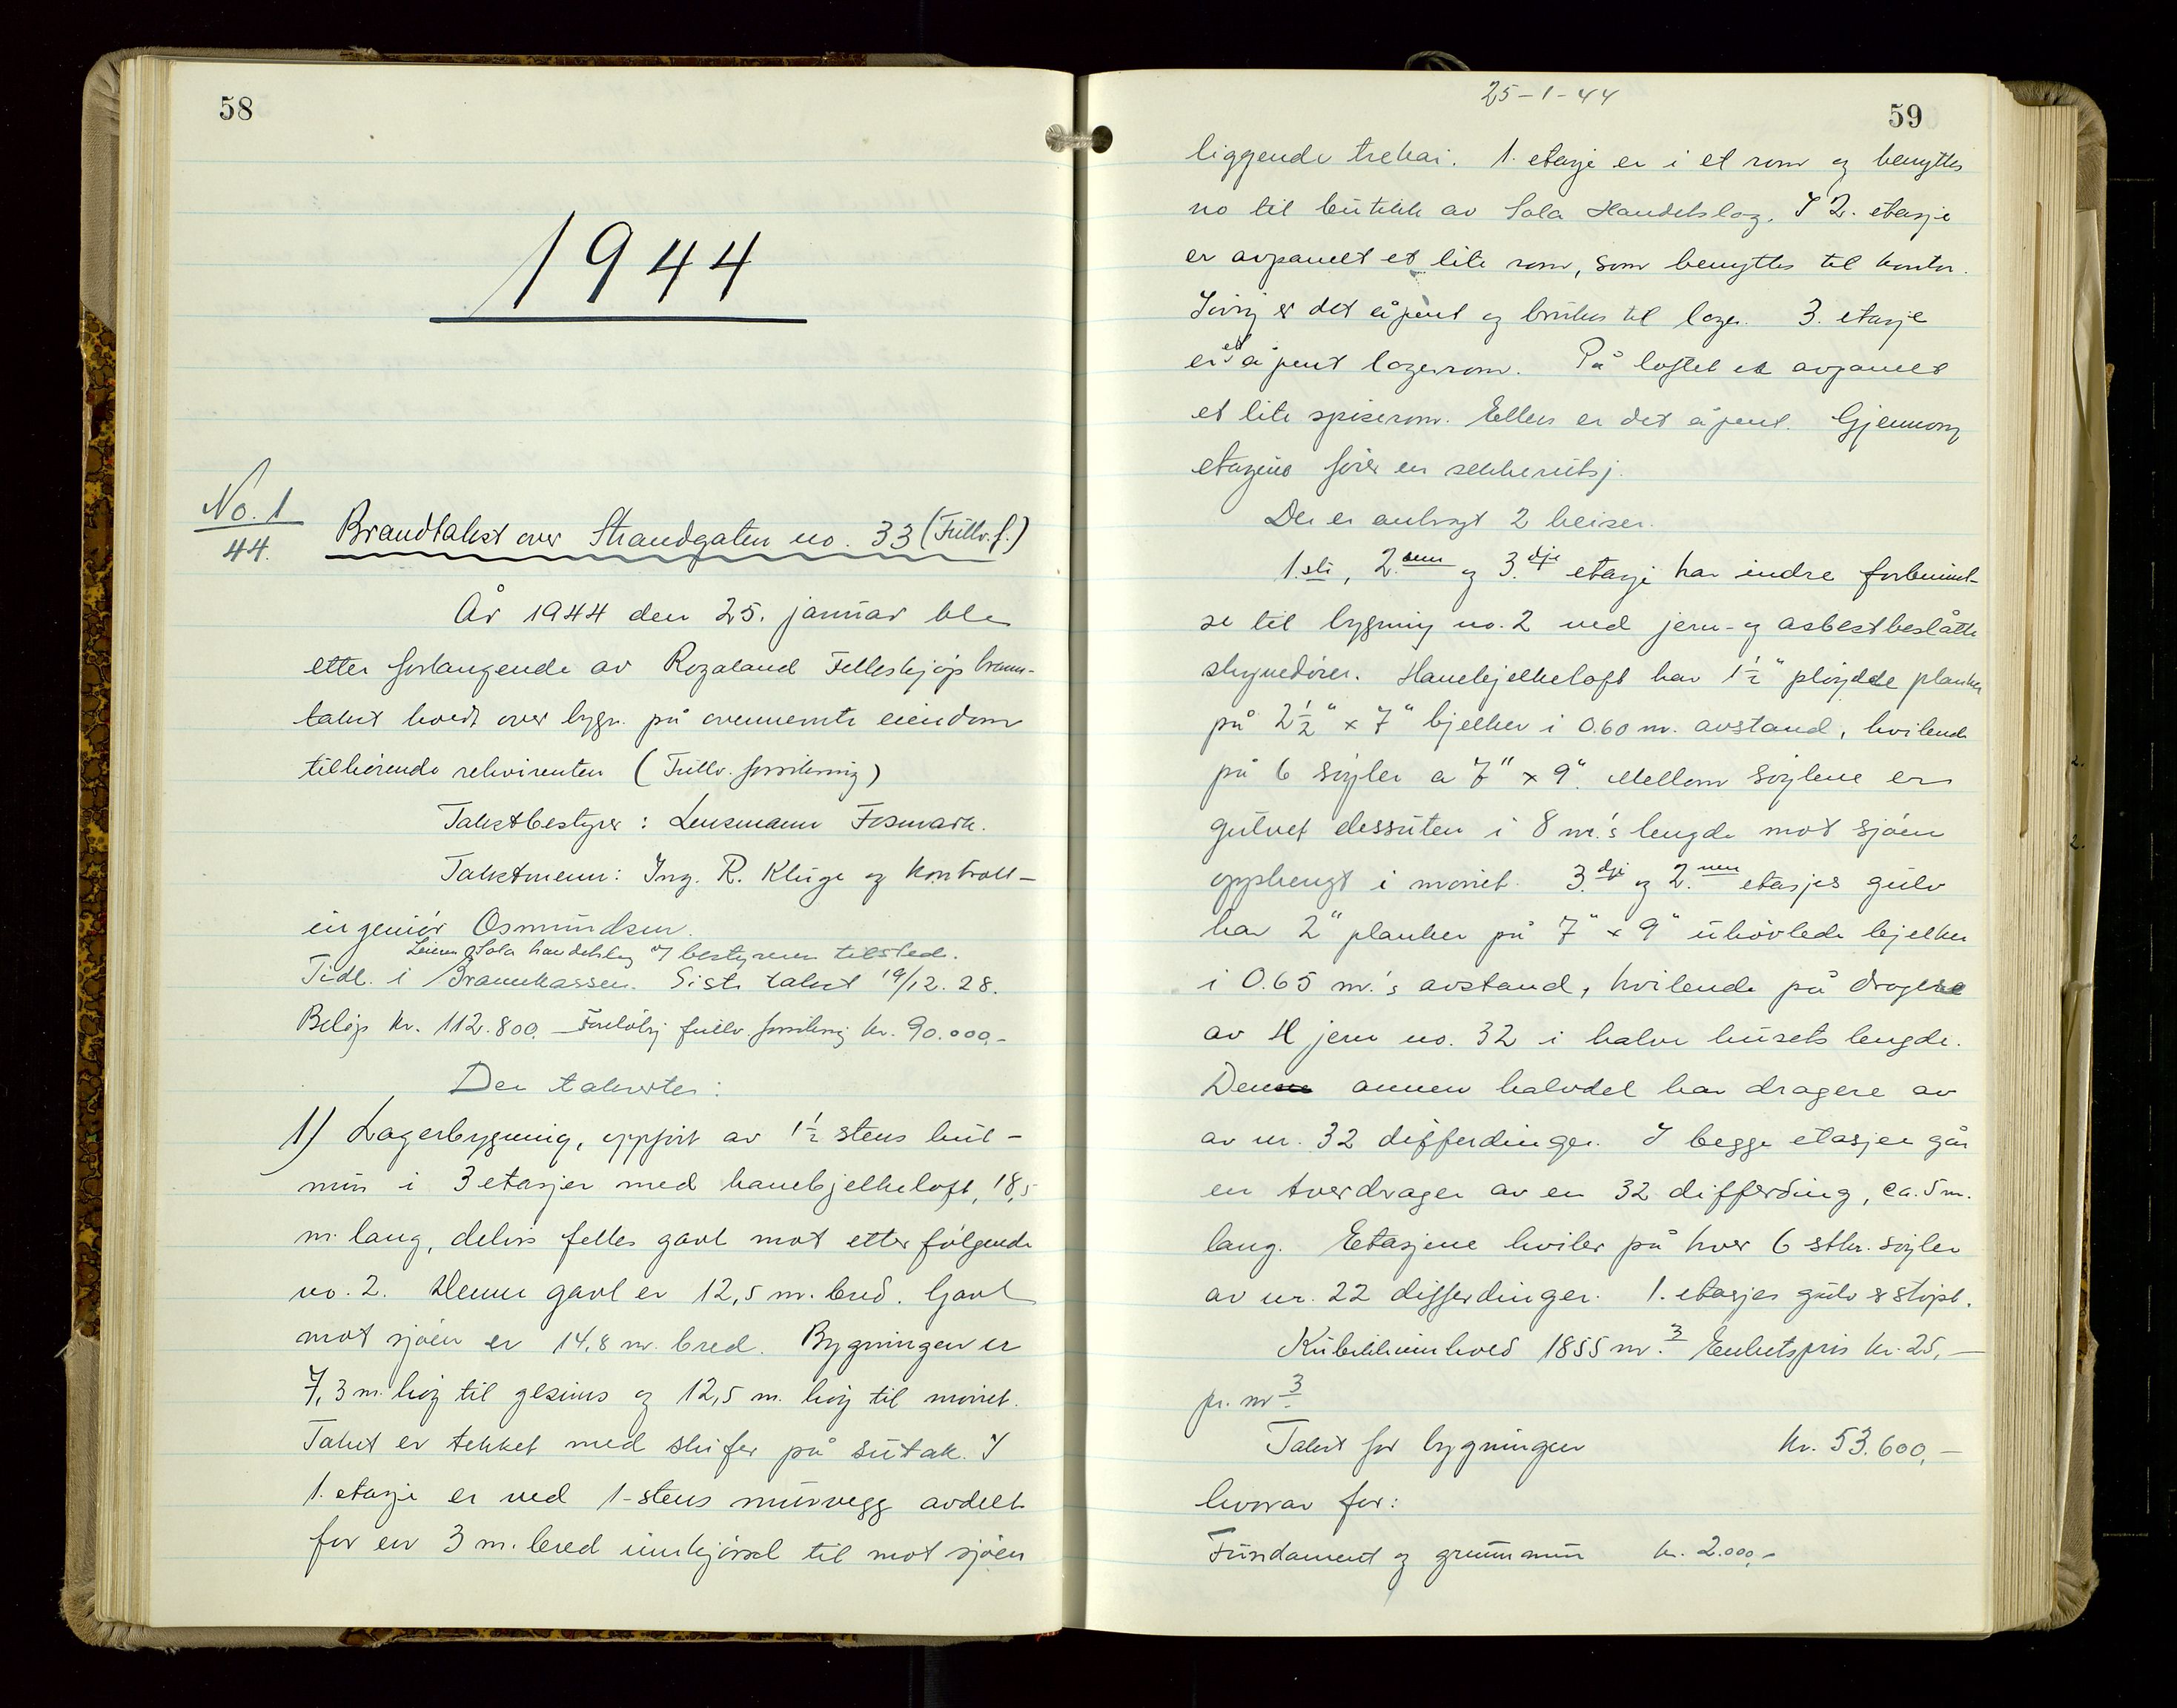 58
1944
No. 1
44.
Brandtakst over Strandgaten no. 33 (Fullv. f.)
År 1944 den 25. januar ble
etter forlangende av Rogaland Felleskjøp brann-
takst holdt over bygn. på ovennemte eiendom
tilhørende rekvirenten (Fullv. forsikring)
Takstbestyrer: Lensmann Fosmark.
Takstmenn: Ing. R. Kluge og kontroll-
ingeniør Osmundsen.
Sola handelslag v/ bestyreren tilstede.
Tidl. i Brannkassen. Siste takst 19/12. 28.
Beløp kr. 112.800. Foreløbig fullv. forsikring kr. 90.000,-
Der takserter:
1) Lagerbygning, oppført av 1½ stens hul-
mur i 3 etasjer med hanebjelkeloft, 18,5
m. lang, delvis felles gavl mot etterfølgende
no. 2. Denne gavl er 12,5 m. bred. Gavl
mot sjøen er 14,8 m. bred. Bygningen er
7,3 m. høy til gesims og 12,5 m. høy til mønet.
Taket er tekket med skifer på sutak. I
1. etasje er ved 1-stens murvegg avdelt
for en 3 m. bred innkjørsel til mot sjøen
25-1-44
59
liggende trekai. 1. etasje er i et rom og benyttes
no til butikk av Sola Handelslag. I 2. etasje
er avpanelt et lite rom, som benyttes til kontor.
Iøvrig er det åpent og brukes til lager. 3. etasje
er et åpent lagerrom. På loftet er avpanelt
et lite spiserom. Ellers er det åpent. Gjennom
etasjene fører en sekkerutsj.
Der er anbragt 2 heiser.
1.ste, 2.nen og 3.dje etasje har indre forbinnel-
se til bygning no. 2 ved jern- og asbestbeslåtte
skyvedører. Hanebjelkeloft har 1½" pløyde planker
på 2½" x 7" bjelker i 0.60 m. avstand, hvilende
på 6 søyler a 7" x 9". Mellom søylene er
gulvet dessuten i 8 m.'s lengde mot sjøen
opphengt i mønet. 3.dje og 2.nen etasjes gulv
har 2" planker på 7" x 9" uhøvlede bjelker
i 0.65 m.'s avstand, hvilende på dragere
av H jern no. 32 i halve husets lengde.
Den annen halvdel har dragere av
av nr. 32 differdinger. I begge etasjer går
en tverdrager av en 32 differding, ca. 5 m.
lang. Etasjene hviler på hver 6 stkr. søyler
av nr. 22 differdinger. 1. etasjes gulv er støpt.
Kubikkinnhold 1855 m.3 Enhetspris kr. 25,-
pr. m3
Takst for bygningen kr. 53.600,-
hvorav for:
Fundament og grunnmur kr. 2.000,-